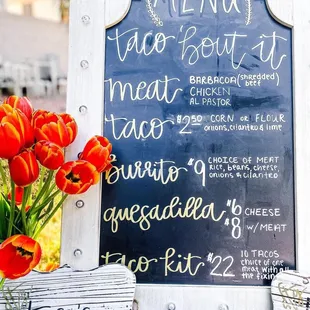 MENU
taco 'bout it
meat BARBACOA (shredded beef)
CHICKEN
AL PASTOR
taco $2.50 CORN or FLOUR
onions, cilantro & lime
burrito $9 CHOICE OF MEAT
Rice, beans,
onions & cilantro
quesadilla $6 CHEESE
$8 w/ MEAT
taco kit $22 10 TACOS
choice of one
meat with all
the fixins